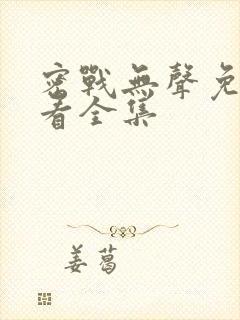 密戰無聲免
看全集
姜葛